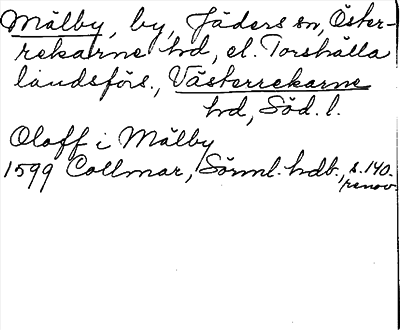 Mälby, by, Jäders sn, Öster-
rekarne hd, el. Torshälla
landsförs., Västerrekarne
hd, Söd. l.
Oloff i Mälby
1599 Collmar, Sörml. hdb., s. 140.
renov.